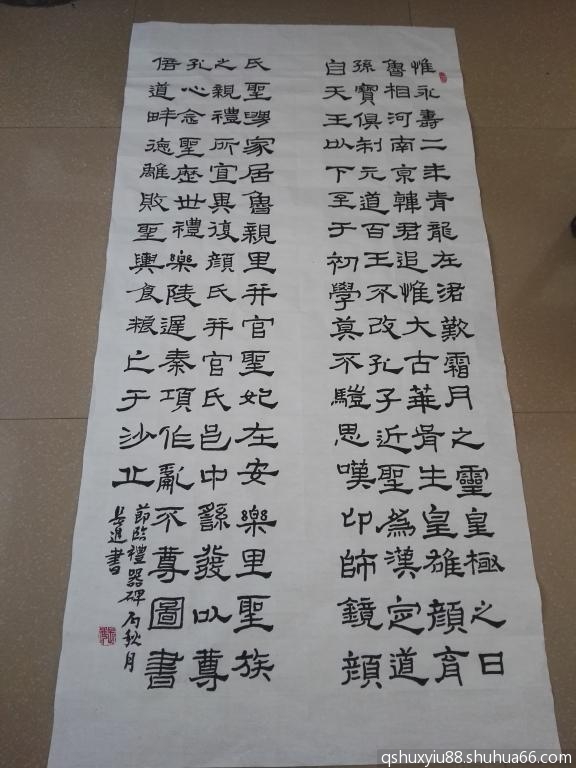 惟永壽二年青龍在涒歎霜月之靈皇極之日
魯相河南京韓君追惟大古華胥生皇雄顏育
孫寶俱制元道百王不改孔子近聖為漢定道
自天王以下至于初學莫不𩥉思嘆卬師鏡顏
氏聖舅家居魯親里并官聖妃在安樂里聖族
之親禮所宜異復顏氏并官氏邑中繇發以尊
孔心念聖歷世禮樂陵遲秦項作亂不尊圖書
倍道畔德離敗聖輿食粮亡于沙丘
節臨禮器碑丙秋月
長進書
qshuxyiu88.shuhua66.com